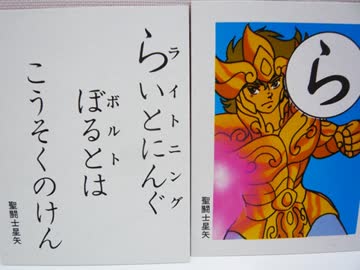 らいとにんぐ
ライトニング
ぼるとは
ボルト
こうそくのけん
聖闘士星矢
ら
聖闘士星矢